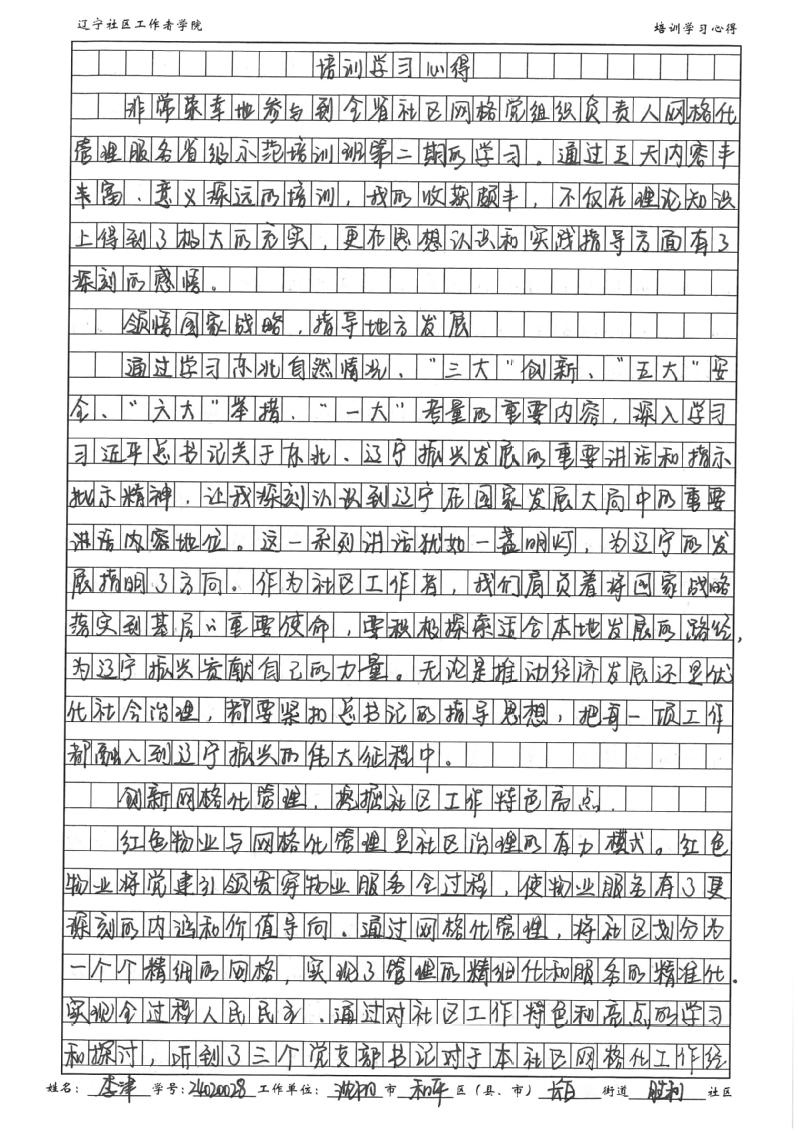 辽宁社区工作者学院 培训学习心得
培训学习心得
非常荣幸地参与到全省社区网格党组织负责人网格化
管理服务省级示范培训班第二期的学习。通过五天内容丰
丰富、意义深远的培训，我的收获颇丰，不仅在理论知识
上得到了极大的充实，更在思想认识和实践指导方面有了
深刻的感悟。
领悟国家战略，指导地方发展
通过学习东北自然情况、“三大”创新、“五大”安
全、“六大”举措、“一大”考量的重要内容，深入学习
习近平总书记关于东北、辽宁振兴发展的重要讲话和指示
批示精神，让我深刻认识到辽宁在国家发展大局中的重要
讲话内容地位。这一系列讲话犹如一盏明灯，为辽宁的发
展指明了方向。作为社区工作者，我们肩负着将国家战略
落实到基层的重要使命，要积极探索适合本地发展的路径，
为辽宁振兴贡献自己的力量。无论是推动经济发展还是优
化社会治理，都要紧扣总书记的指导思想，把每一项工作
都融入到辽宁振兴的伟大征程中。
创新网格化管理，挖掘社区工作特色亮点.
红色物业与网格化管理是社区治理的有力模式。红色
物业将党建引领贯穿物业服务全过程，使物业服务有了更
深刻的内涵和价值导向。通过网格化管理，将社区划分为
一个个精细的网格，实现了管理的精细化和服务的精准化。
实现全过程人民民主.通过对社区工作特色和亮点的学习
和探讨，听到了三个党支部书记对于本社区网格化工作经
姓名：李津 学号：24020028 工作单位：沈阳市 和平区（县、市） 街道 胜利社区